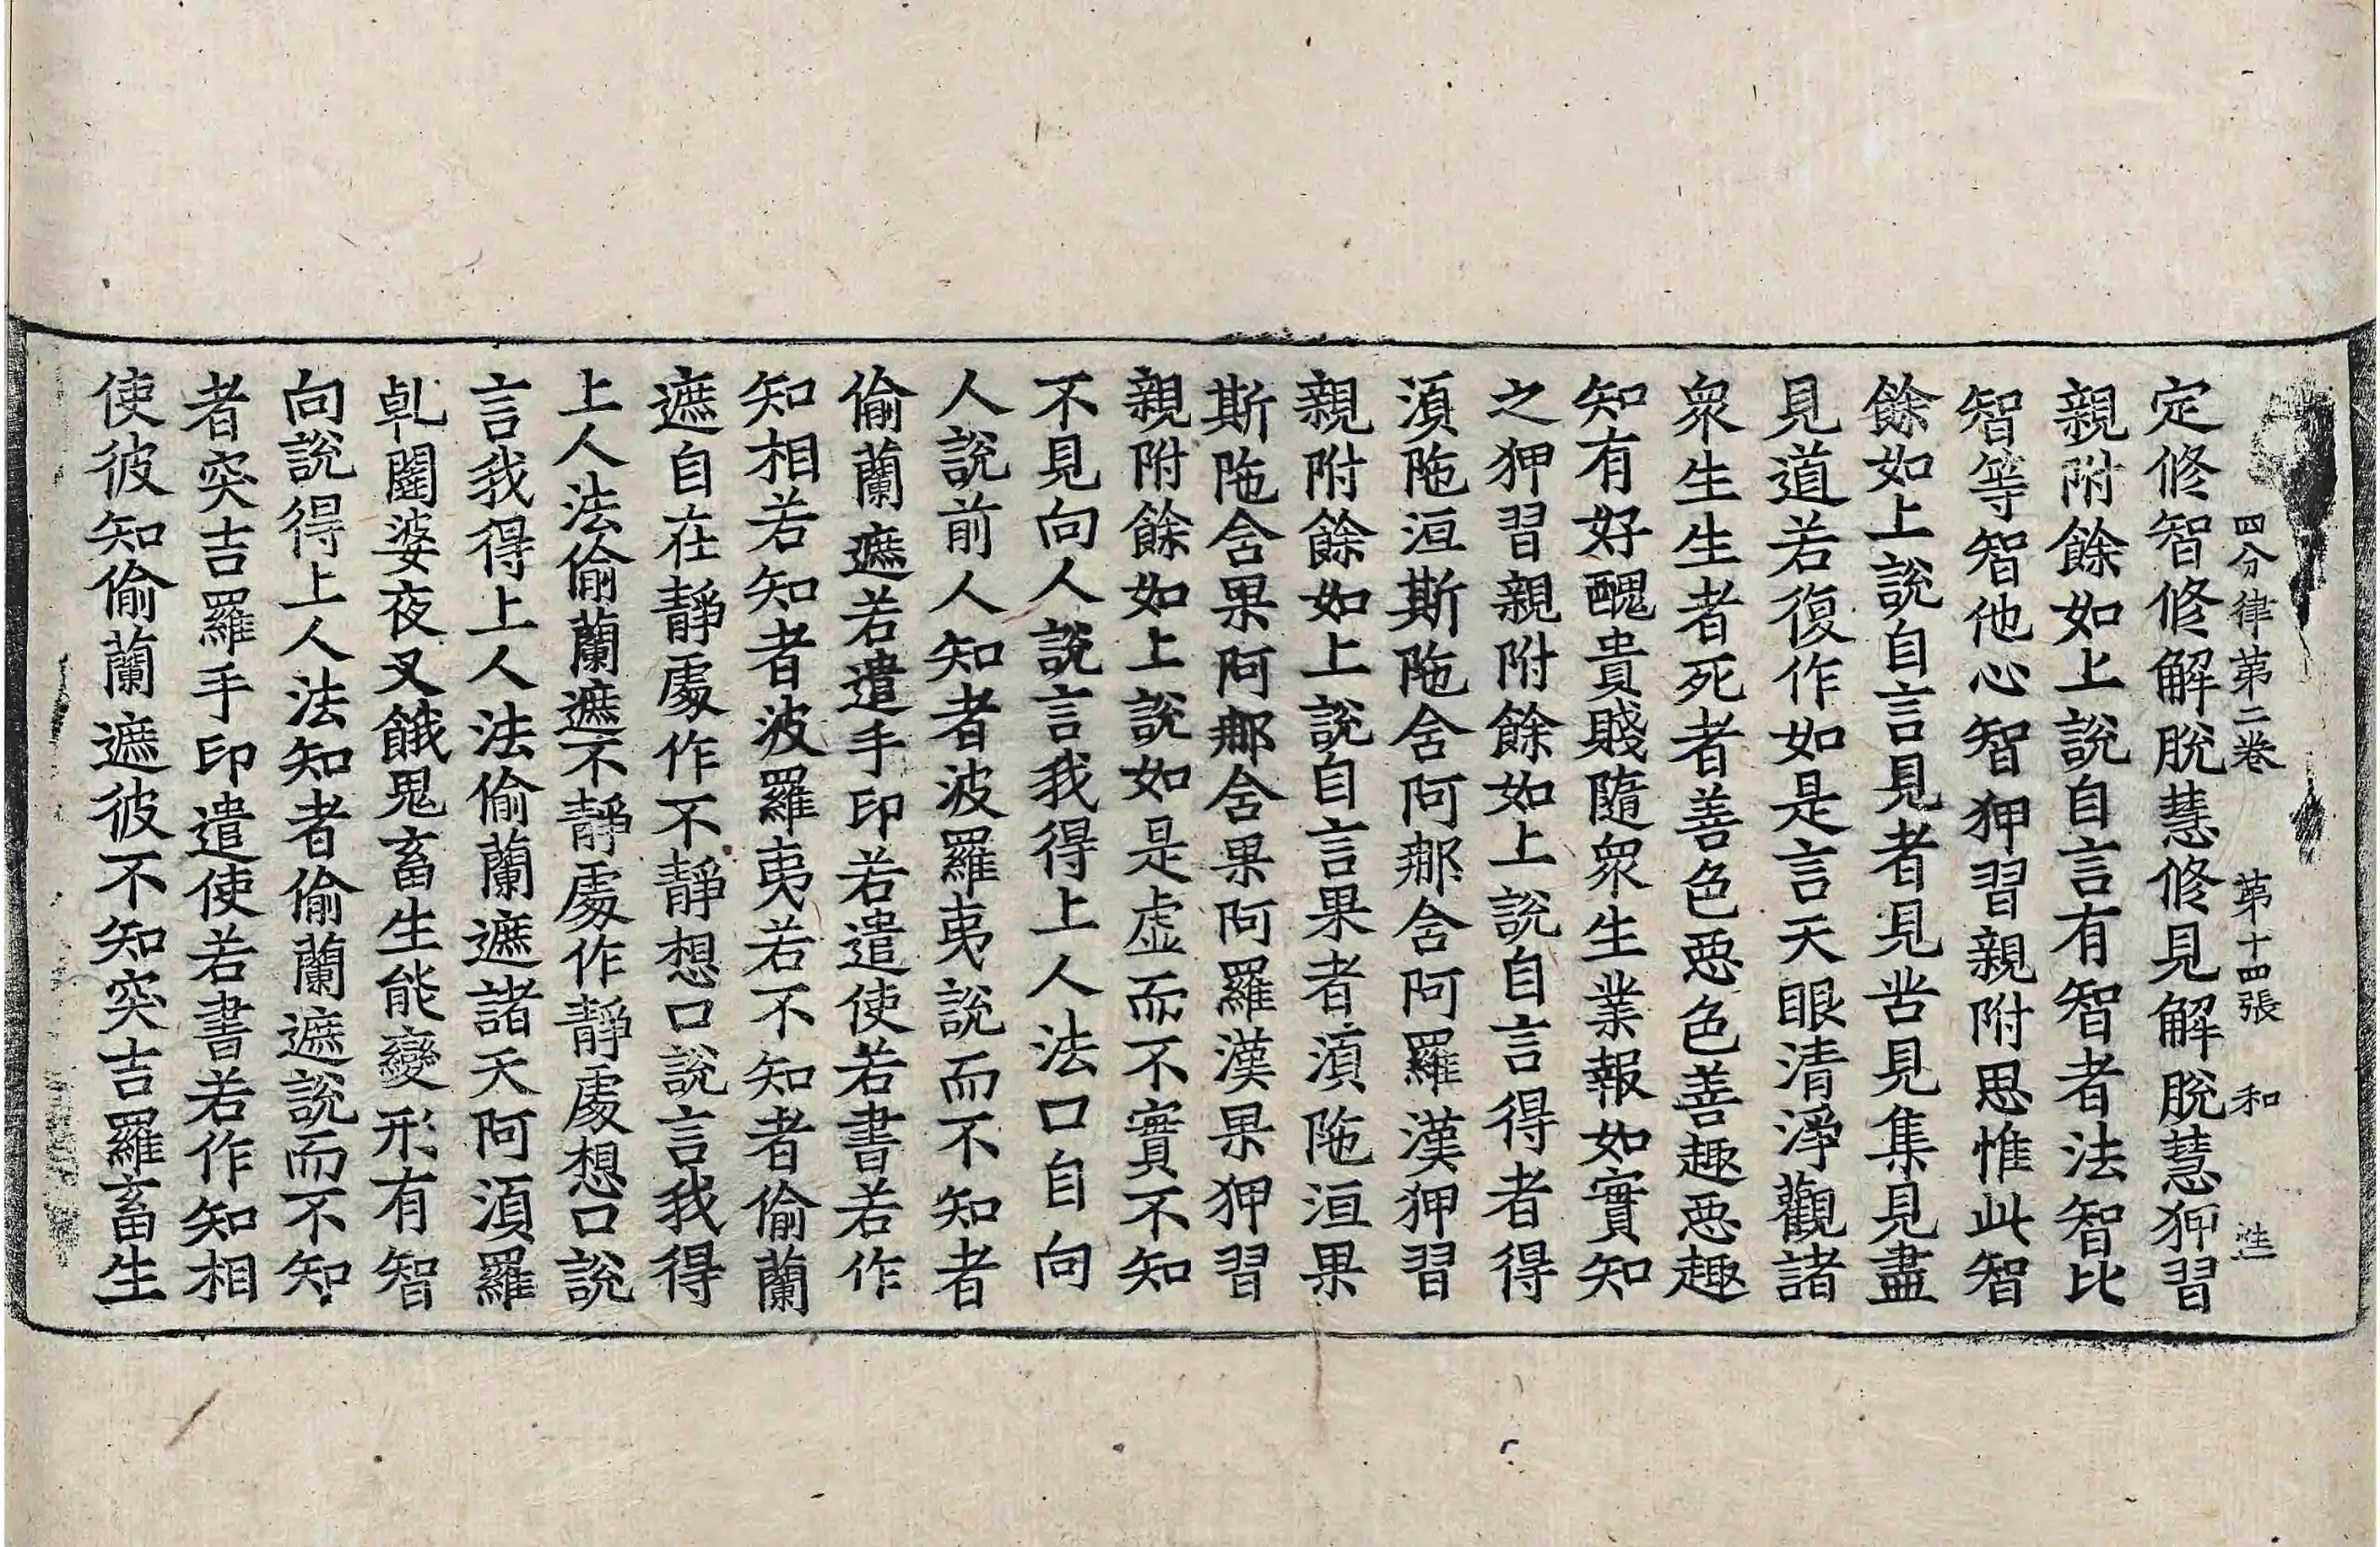 四分律第二卷 第十四張 和
定修智修解脫慧修見解脫慧狎習
親附餘如上說自言有智者法智比
智等智他心智狎習親附思惟此智
餘如上說自言見者見苦見集見盡
見道若復作如是言天眼清淨觀諸
衆生生者死者善色惡色善趣惡趣
知有好醜貴賤隨衆生業報如實知
之狎習親附餘如上說自言得者得
湏陁洹斯陁含阿那含阿羅漢狎習
親附餘如上說自言果者湏陁洹果
斯陁含果阿那含果阿羅漢果狎習
親附餘如上說如是虛而不實不知
不見向人說言我得上人法口自向
人說前人知者波羅夷說而不知者
偷蘭遮若遣手印若遣使若書若作
知相若知者波羅夷若不知者偷蘭
遮自在靜處作不靜想口說言我得
上人法偷蘭遮不靜處作靜處想口說
言我得上人法偷蘭遮諸天阿湏羅
乹闥婆夜叉餓鬼畜生能變形有智
向說得上人法知者偷蘭遮說而不知
者突吉羅手印遣使若書若作知相
使彼知偷蘭遮彼不知突吉羅畜生